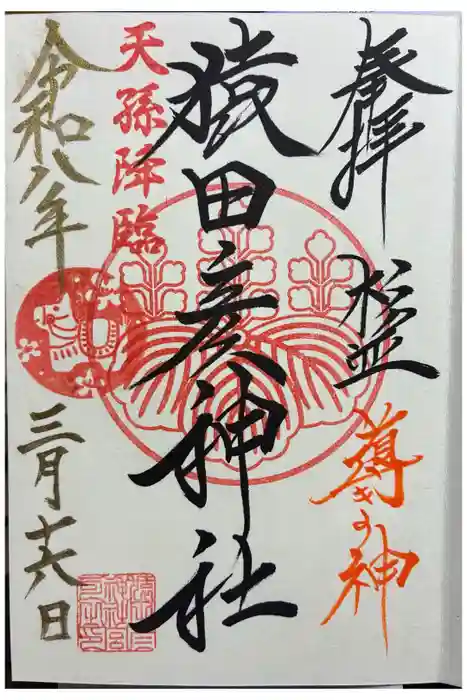 奉拝
松並
導きの神
猿田彦神社
天孫降臨
令和八年
三月十六日